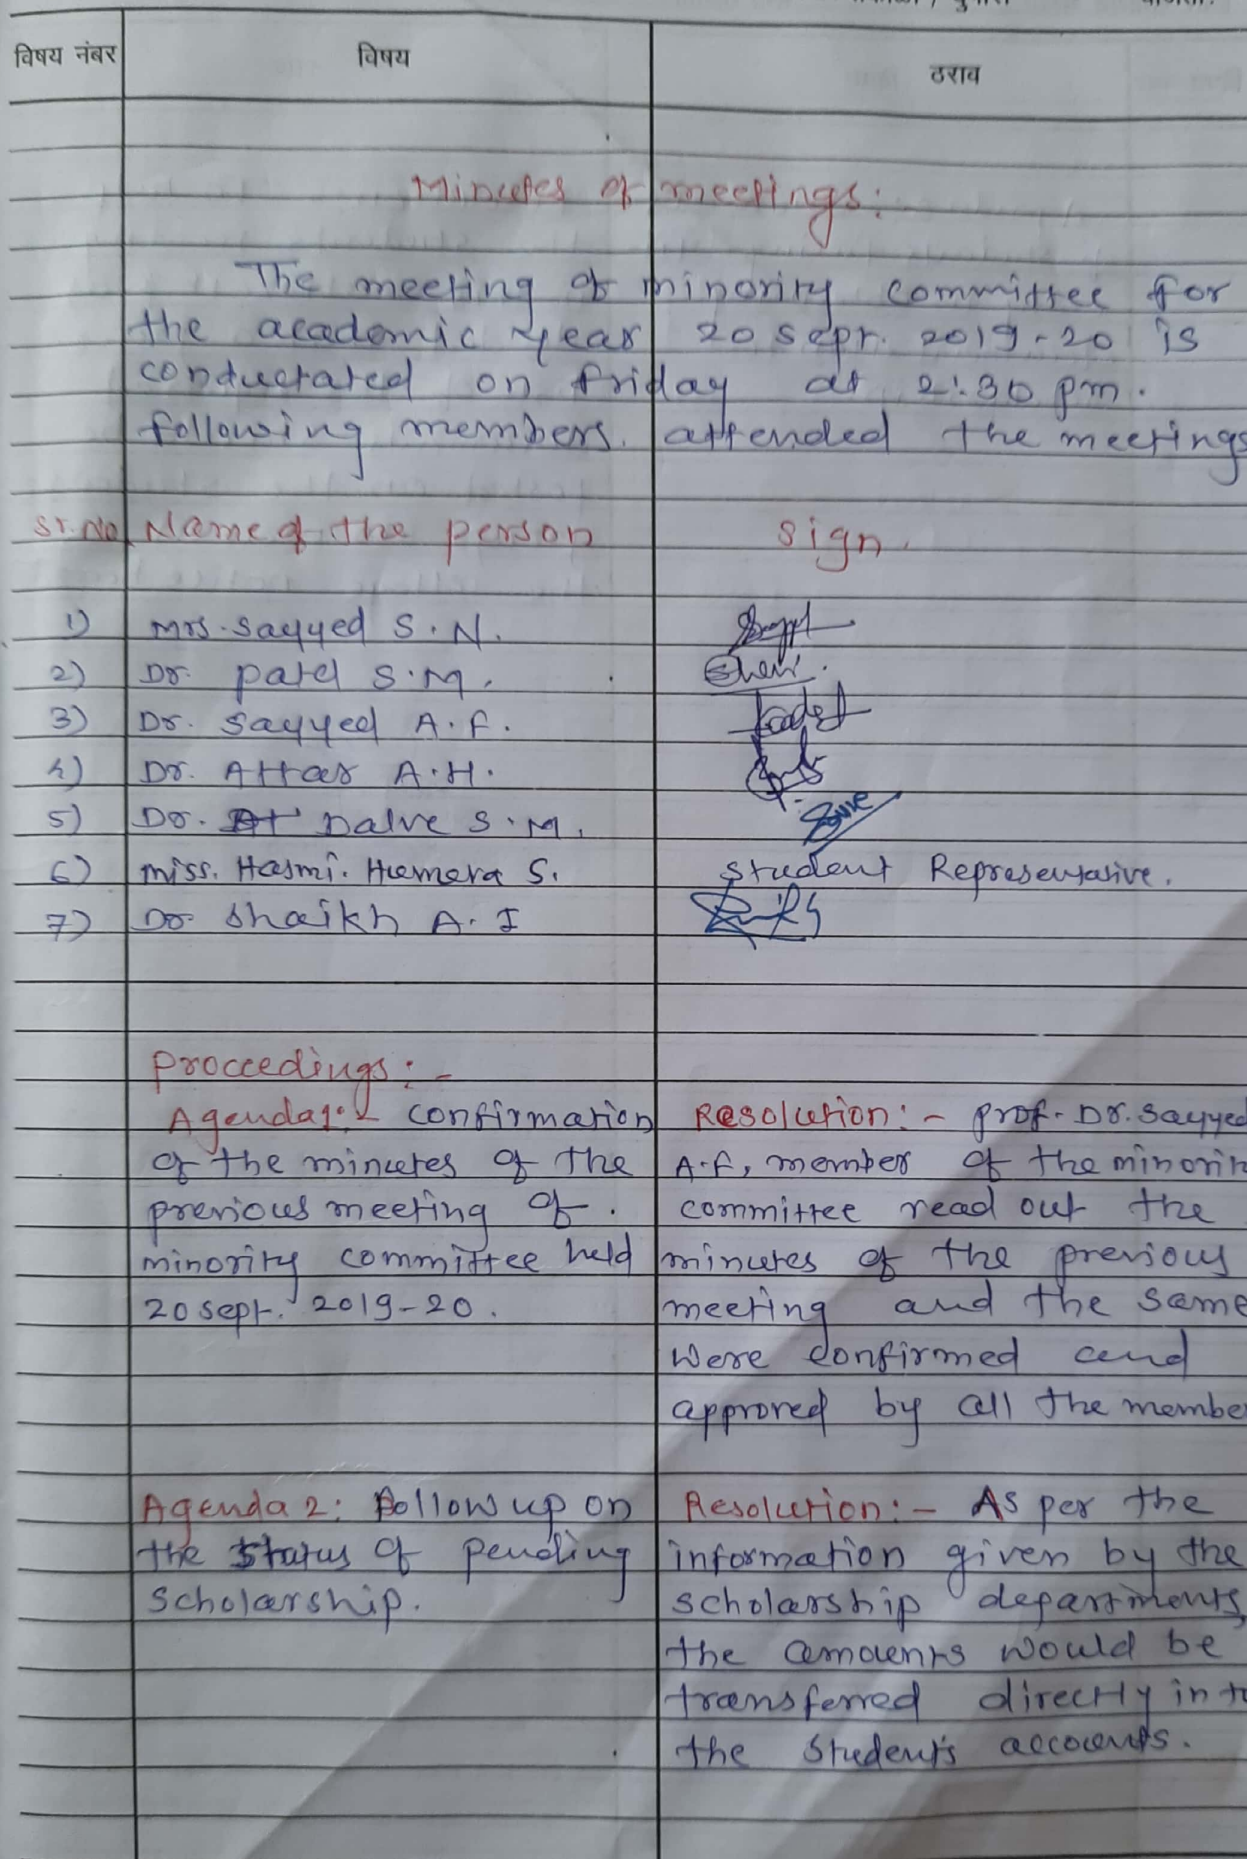 विषय नंबर विषय ठराव
Minutes of meetings:
The meeting of minority committee for
the academic year 20 sepr. 2019-20 is
conductated on friday at 2:30 pm.
following members. attended the meetings
Sr.No. Name of the person sign.
1) Mrs. Sayyed S.N.
2) Dr. Patel S.M.
3) Dr. Sayyed A.F.
4) Dr. Attar A.H.
5) Dr. At Dalve S.M.
6) Miss. Hasmi. Humera S. Student Representative.
7) Dr. Shaikh A.I
Proceedings:-
Agenda1:- Confirmation
of the minutes of the
previous meeting of.
minority committee held
20 sept. 2019-20.
Resolution:- Prof. Dr. Sayyed
A.F, member of the minorit
committee read out the
minutes of the previous
meeting and the same
were confirmed and
approved by all the membe
Agenda 2: Follow up on
the status of pending
scholarship.
Resolution:- As per the
information given by the
scholarship departments,
the amounts would be
transferred directly int
the students accounts.